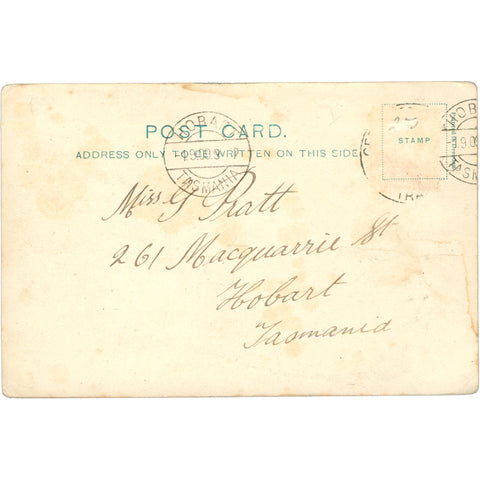 POST CARD.
STAMP
ADDRESS ONLY TO BE WRITTEN ON THIS SIDE
HOBART
TASMANIA
Miss G Pratt
261 Macquarrie St
Hobart
Tasmania